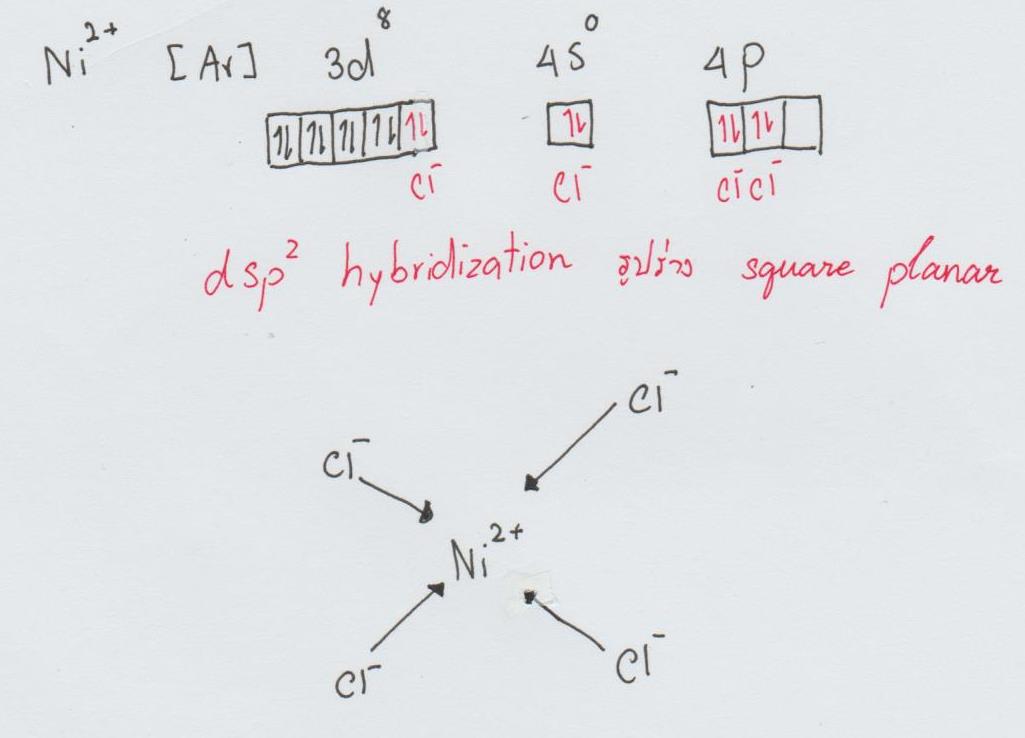 Ni²⁺ [Ar] 3d⁸ 4s⁰ 4p
⥮ ⥮ ⥮ ⥮ ⥮ ⥮ ⥮ ⥮
Cl⁻ Cl⁻ Cl⁻ Cl⁻
dsp² hybridization รูปร่าง square planar
Cl⁻
Cl⁻
Ni²⁺
Cl⁻ Cl⁻